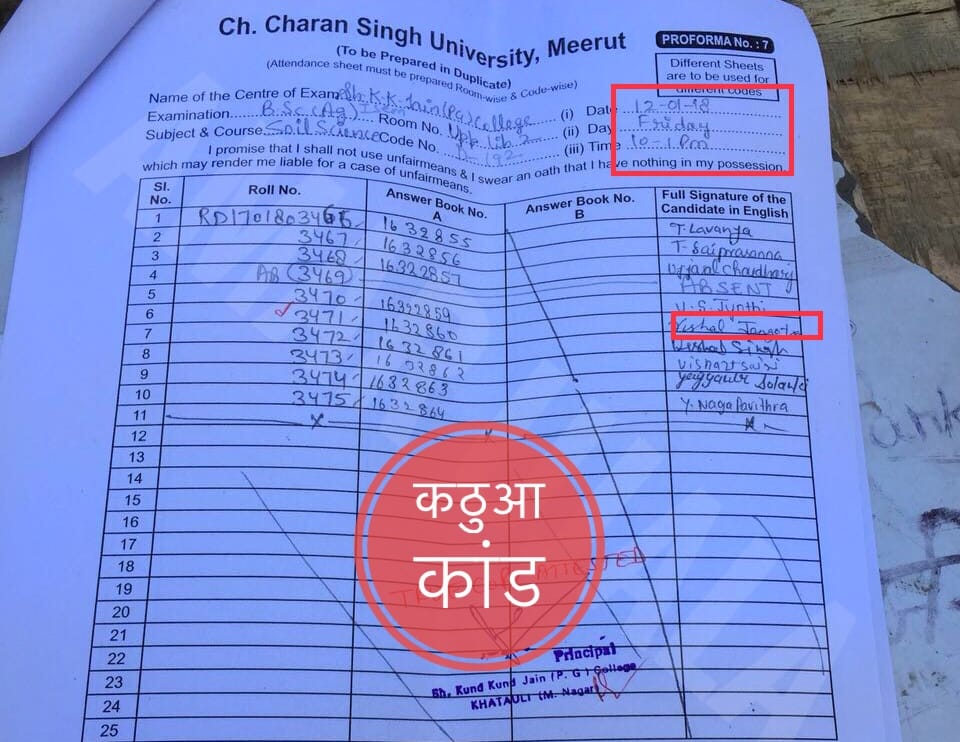 Ch. Charan Singh University, Meerut
PROFORMA No. : 7
(To be Prepared in Duplicate)
(Attendance sheet must be prepared Room-wise & Code-wise)
Different Sheets
are to be used for
different codes
Name of the Centre of Exam. Sh. K.K. Jain (PG) College (i) Date 12-01-18
Examination B.Sc. (Ag) I Sem Room No. Upp. Lib. 2 (ii) Day Friday
Subject & Course Soil Science Code No. (iii) Time 10-1 Pm
I promise that I shall not use unfairmeans & I swear an oath that I have nothing in my possession
which may render me liable for a case of unfairmeans.
Sl. No. Roll No. Answer Book No. A Answer Book No. B Full Signature of the Candidate in English
1 RD17018034 1632855 T. Lavanya
2 3467 1632856 T. Saiprasanna
3 3468 16322857 Ujjaval Chaudhary
4 AB (3469) ABSENT
5 3470 16322859 U. S. Jyothi
6 3471 1632860 Vishal Jangotra
7 3472 1632861 Vishal Singh
8 3473 1632862
9 3474 1632863 Solanki
10 3475 1632864 Y. Naga Pavithra
11 x x x
12
13
14
15
16
17
18
19
20
21
22
23
24
25
कठुआ
कांड
Principal
Sh. Kund Kund Jain (P. G.) College
KHATAULI (M. Nagar)